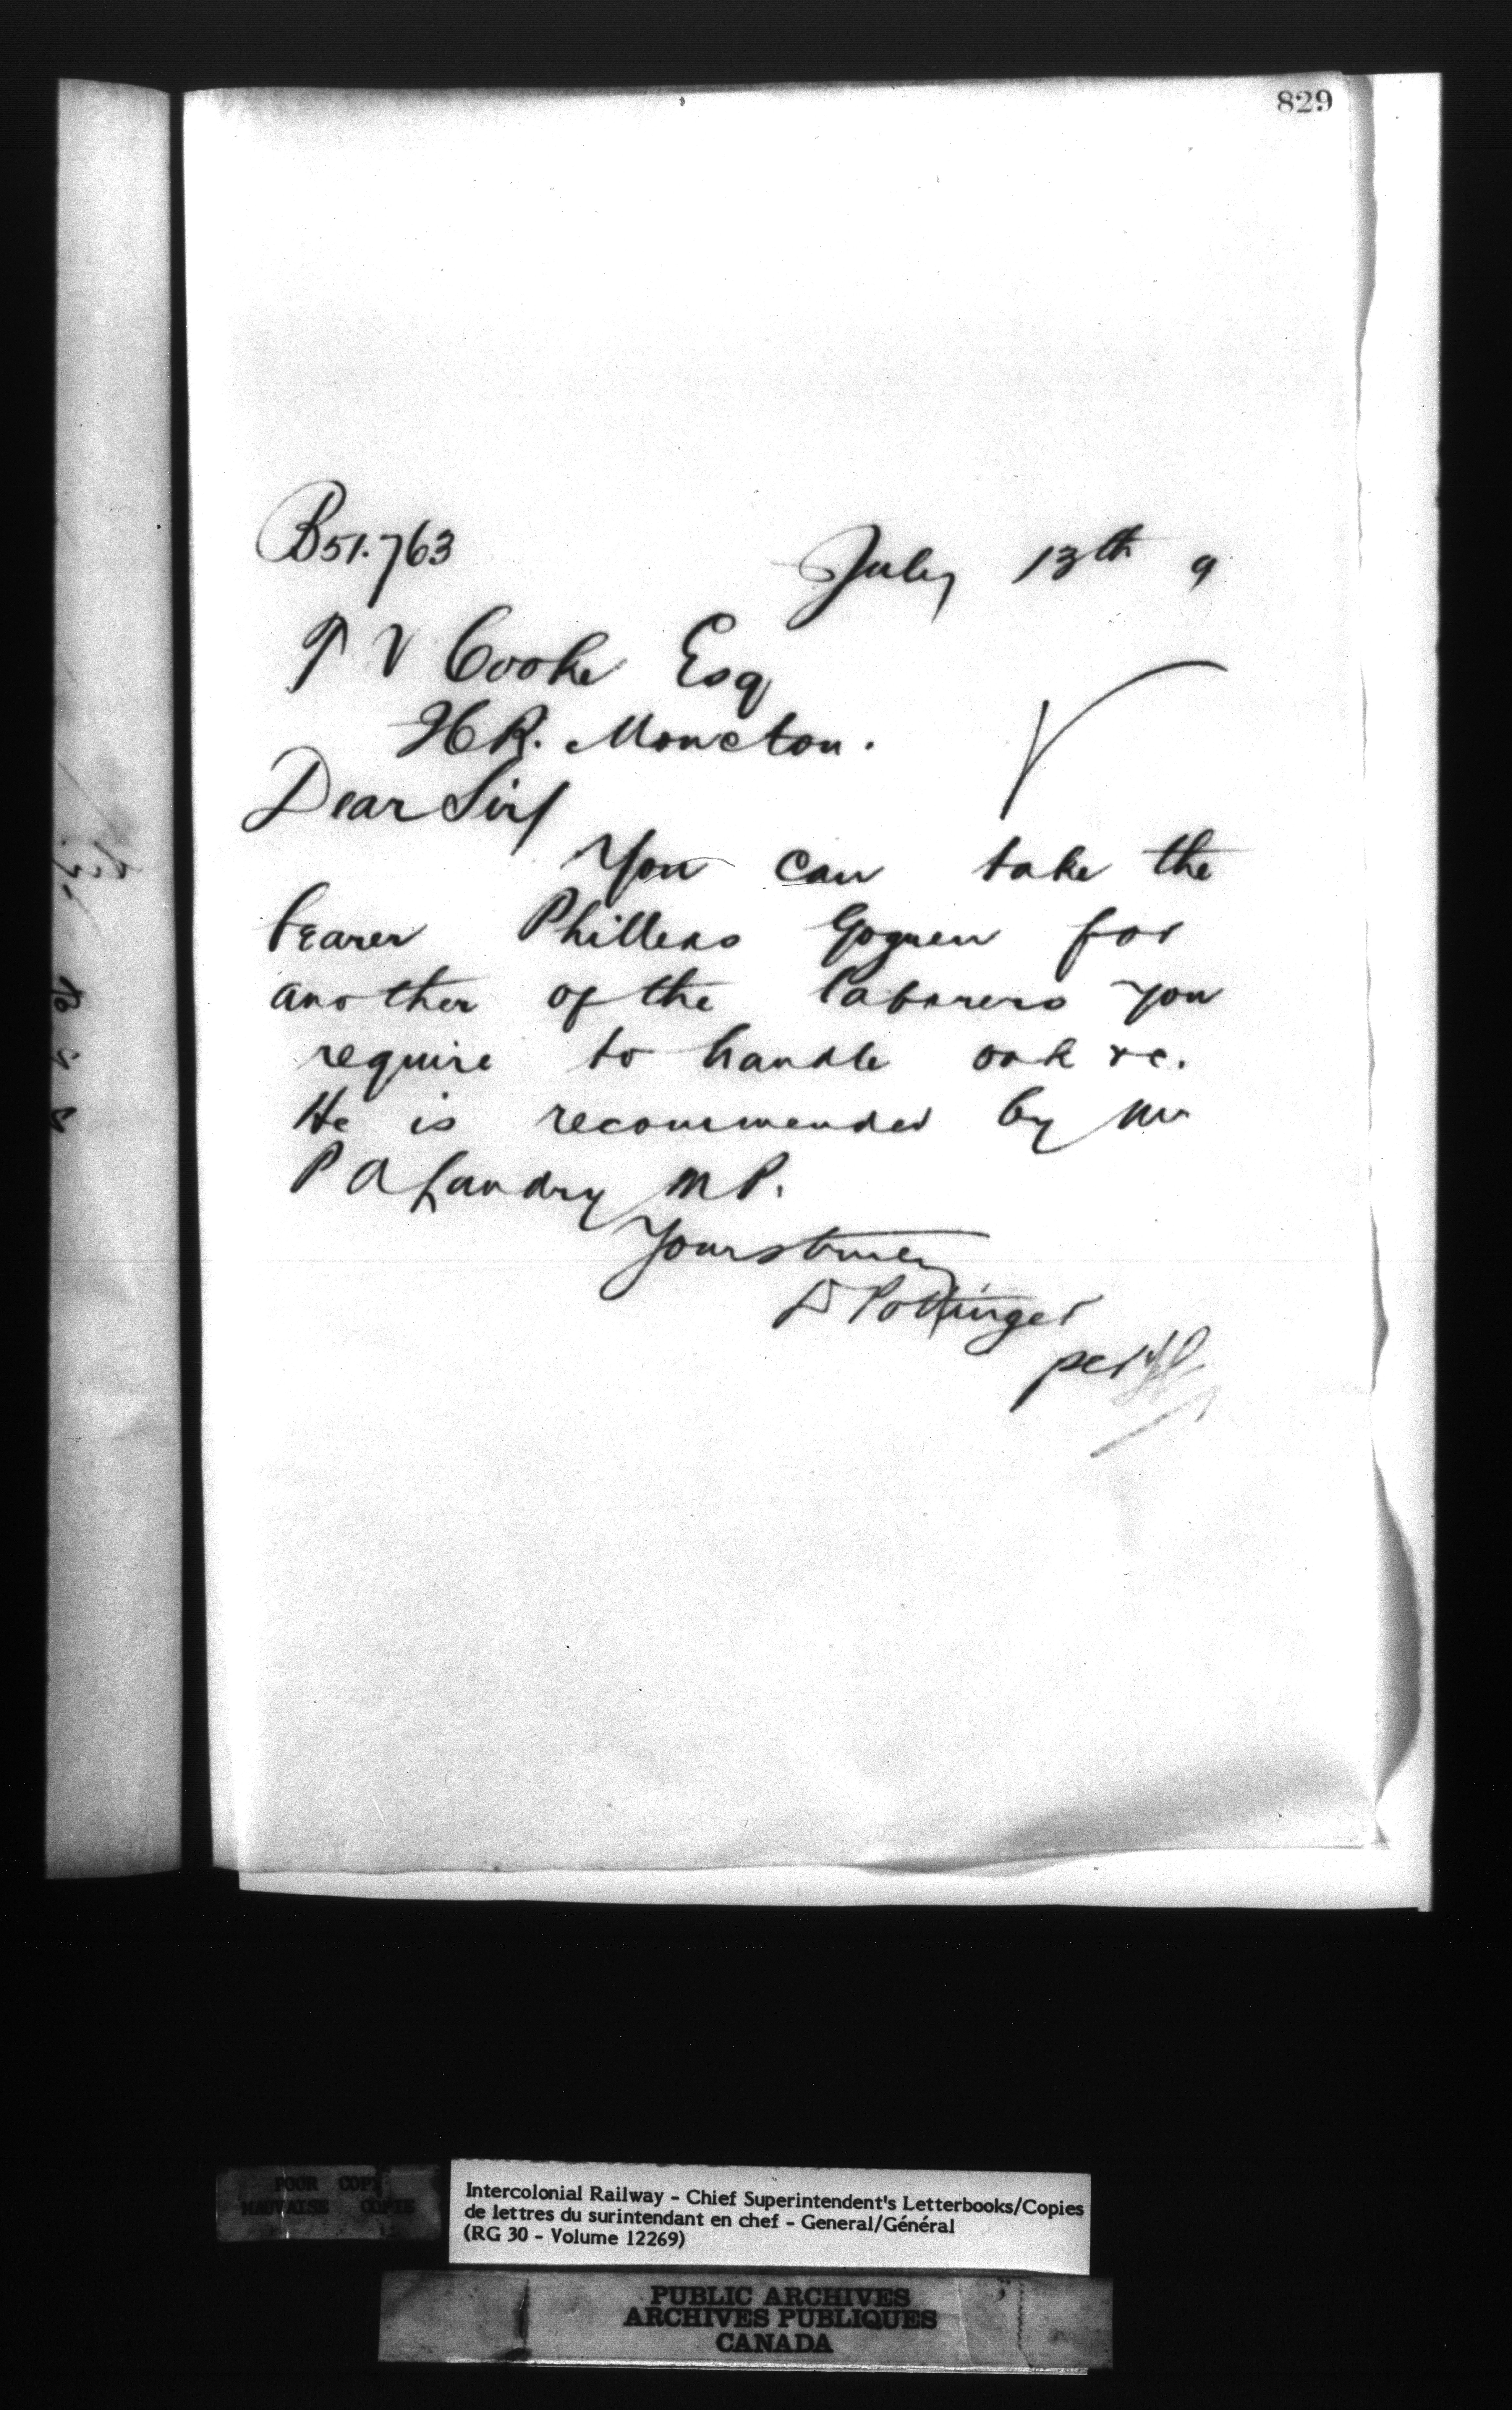 829
B51.763
July 13th 9
T V Cooke Esq
Moncton.
Dear Sir
You can take the
bearer Goguen for
another of the laborers you
require to handle oak &c.
He is recommended by Mr
P A Landry M P.
Yours truly
D Pottinger
per
POOR COPY
MAUVAISE COPIE
Intercolonial Railway - Chief Superintendent's Letterbooks/Copies
de lettres du surintendant en chef - General/Général
(RG 30 - Volume 12269)
PUBLIC ARCHIVES
ARCHIVES PUBLIQUES
CANADA